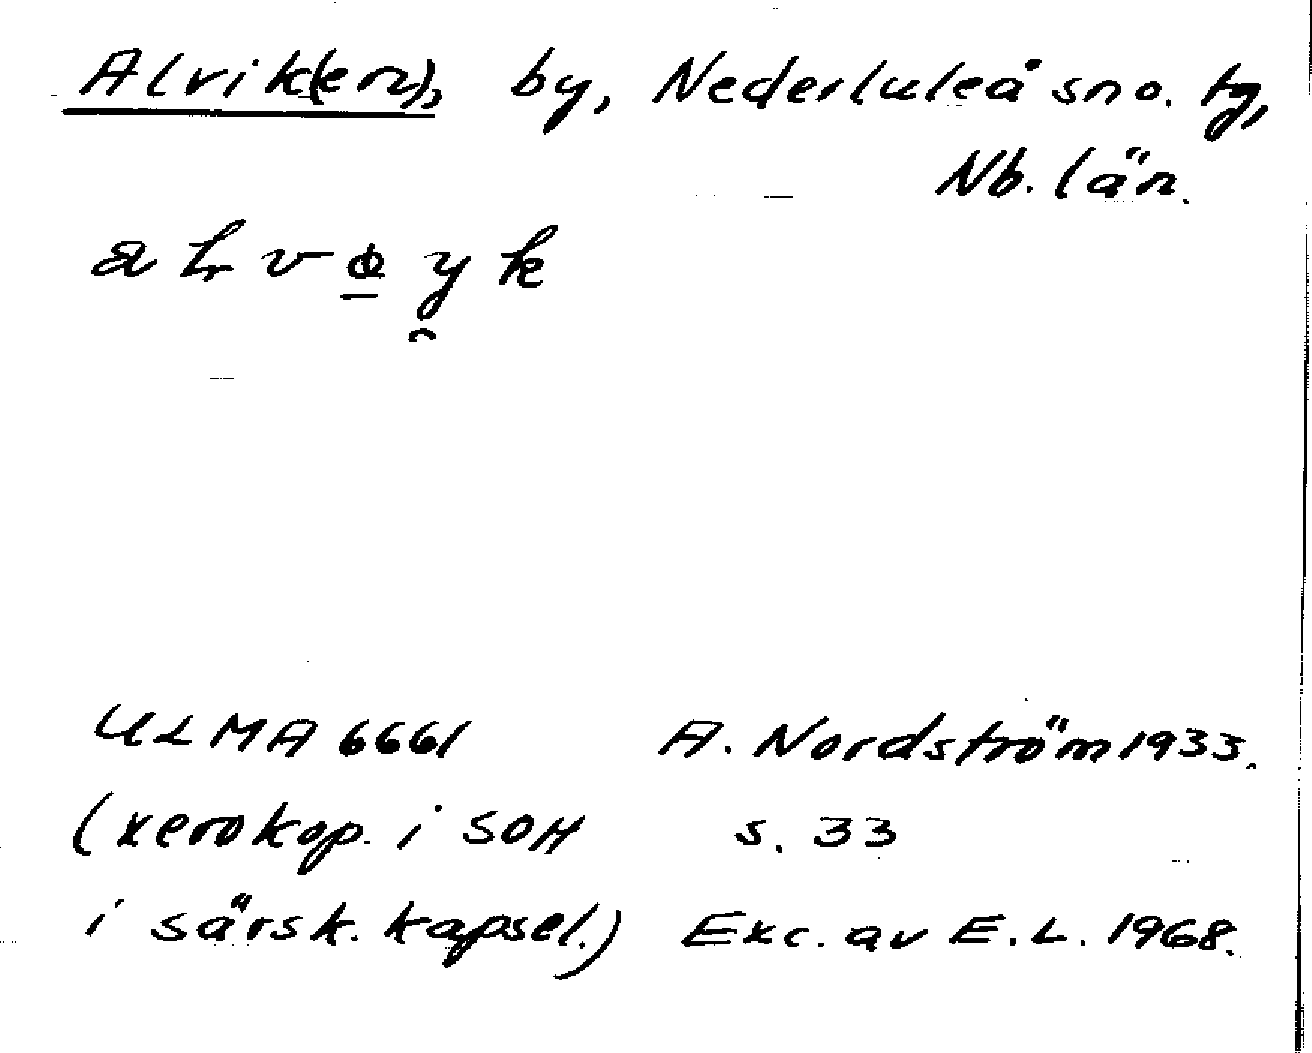 Alvik(en), by, Nederluleå sn o. tg,
Nb. län.
ULMA 6661 A. Nordström 1933.
(xerokop. i SOH s. 33
i särsk. kapsel.) Exc. av E.L. 1968.